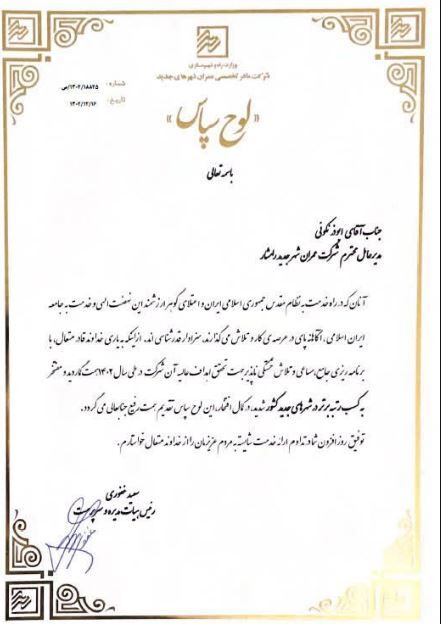 وزارت راه و شهرسازی
شرکت مادر تخصصی عمران شهرهای جدید
شماره: ۱۴۰۲/۱۸۸۲۵/ص
تاریخ: ۱۴۰۲/۱۲/۱۶
« لوح سپاس »
باسمه تعالی
جناب آقای ابوذر نکوئی
مدیرعامل محترم شرکت عمران شهر جدید رامشار
آنان که در راه خدمت به نظام مقدس جمهوری اسلامی ایران و اعتلای گوهر ارزشمند این نهضت الهی و خدمت به جامعه
ایران اسلامی، آگاهانه پای در عرصه ی کار و تلاش می گذارند، سزاوار قدرشناسی اند. از اینکه به یاری خداوند قادر متعال، با
برنامه ریزی جامع، مساعی و تلاش خستگی ناپذیر جهت تحقق اهداف عالیه آن شرکت در طی سال ۱۴۰۲ همت گماردید و مفتخر
به کسب رتبه برتر در شهرهای جدید کشور شدید، در کمال افتخار، این لوح سپاس تقدیم همت رفیع جنابعالی می گردد.
توفیق روزافزون شما و تداوم ارائه خدمت شایسته به مردم عزیزمان را از خداوند متعال خواستارم.
سعید غفوری
رئیس هیات مدیره و سرپرست